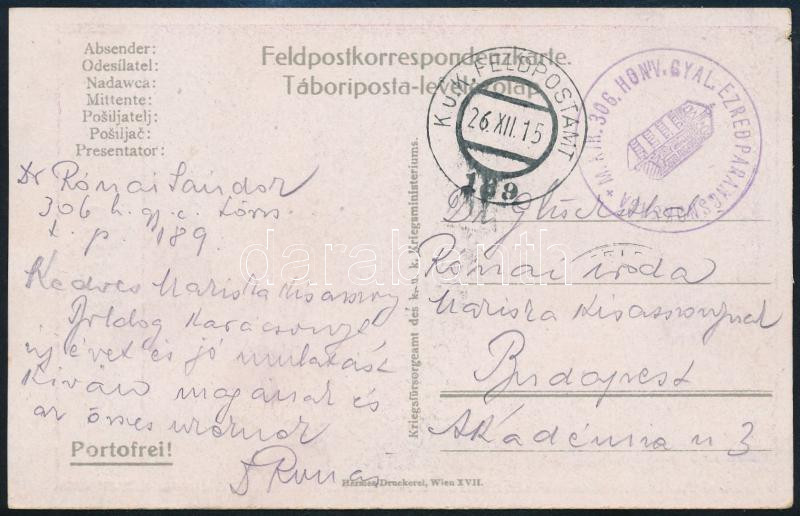 Absender:
Odesílatel:
Nadawca:
Mittente:
Pošiljatelj:
Pošiljač:
Presentator:
Feldpostkorrespondenzkarte.
Tábori posta-levelezőlap.
K.u.K. FELDPOSTAMT
26.XII.15
189
M. KIR. 306. HONV. GYAL. EZREDPARANCSNOKSÁGA
Dr Rónai Sándor
306 h. gy. e.
t. p. 189.
Kedves Mariska kisasszony
Boldog Karácsonyt
új évet és jó mulatást
Kiván magának és
az összes
D Rónai
Portofrei!
Kriegsfürsorgeamt des k. u. k. Kriegsministeriums.
Dr
Rónai iroda
Mariska Kisasszonynak
Budapest
Akadémia u 3
Hermes-Druckerei, Wien XVII.
darabanth